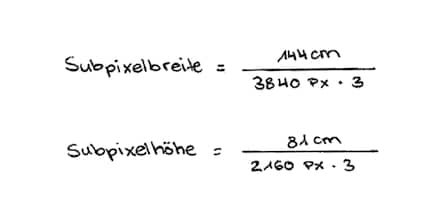 Subpixelbreite = 144cm / 3840 px · 3
Subpixelhöhe = 81cm / 2160 px · 3